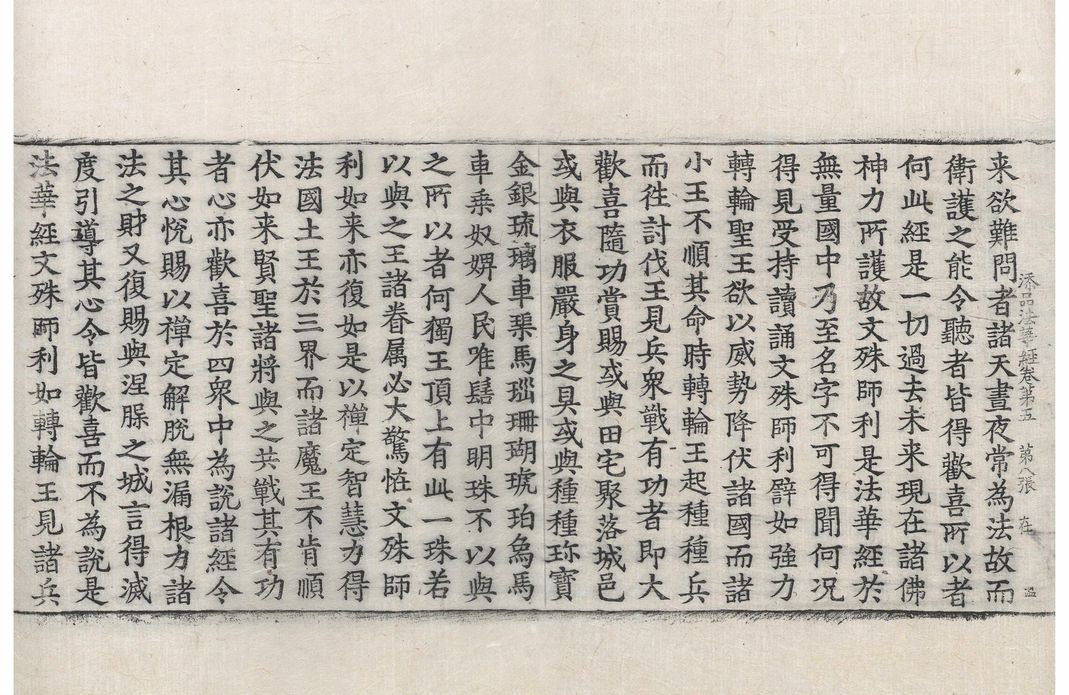 添品法華經卷第五 第八張 在
来欲難問者諸天晝夜常為法故而
衛護之能令聽者皆得歡喜所以者
何此經是一切過去未来現在諸佛
神力所護故文殊師利是法華經於
無量國中乃至名字不可得聞何況
得見受持讀誦文殊師利譬如強力
轉輪聖王欲以威勢降伏諸國而諸
小王不順其命時轉輪王起種種兵
而徃討伐王見兵衆戰有功者即大
歡喜隨功賞賜或與田宅聚落城邑
或與衣服嚴身之具或與種種珎寶
金銀琉璃車磲馬瑙珊瑚琥珀象馬
車乗奴婢人民唯髻中明珠不以與
之所以者何獨王頂上有此一珠若
以與之王諸眷属必大驚恠文殊師
利如来亦復如是以禪定智慧力得
法國土王於三界而諸魔王不肯順
伏如来賢聖諸將與之共戰其有功
者心亦歡喜於四衆中為說諸經令
其心悅賜以禪定解脫無漏根力諸
法之財又復賜與涅槃之城言得滅
度引導其心令皆歡喜而不為說是
法華經文殊師利如轉輪王見諸兵